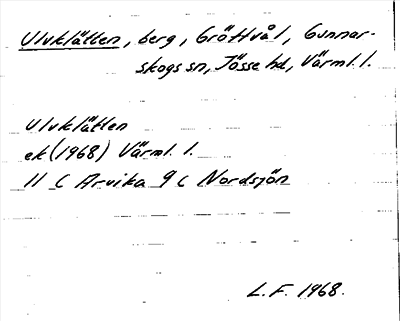 Ulvklätten, berg, Gröttvål, Gunnar-
skogs sn, Jösse hd, Värml. l.
Ulvklätten
ek (1968) Värml. l.
11 C Arvika 9 c Nordsjön
L.F. 1968.